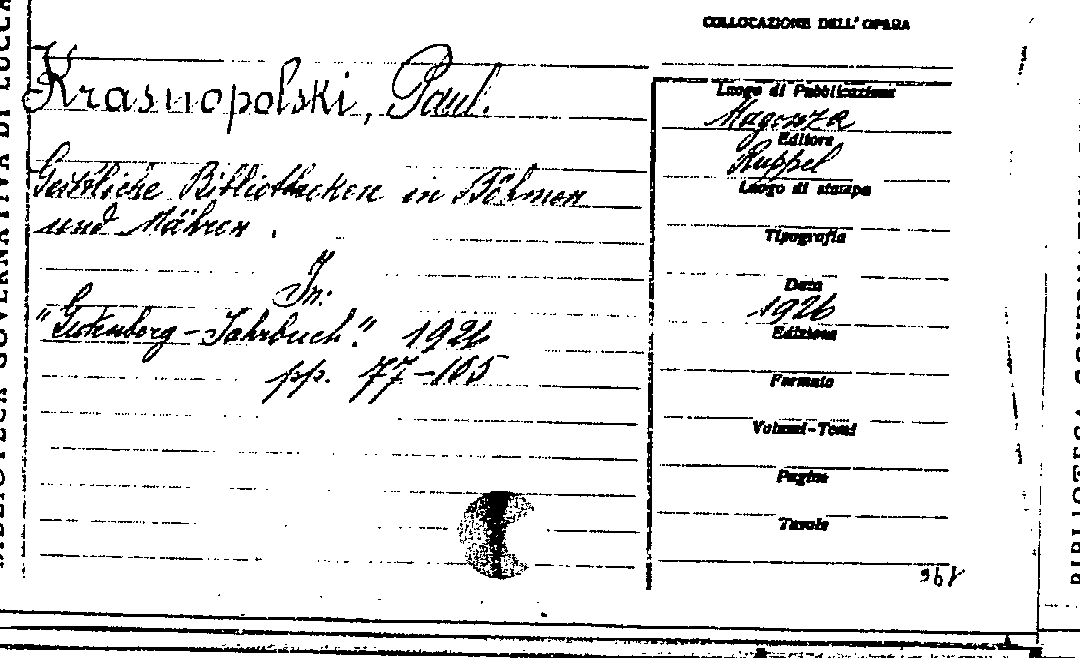 COLLOCAZIONE DELL'OPERA
Krasnopolski, Paul.
Geistliche Bibliotheken in Böhmen
und Mähren.
In:
"Gutenberg-Jahrbuch". 1926
pp. 77-105
Luogo di Pubblicazione
Magonza
Editore
Ruppel
Luogo di stampa
Tipografia
Data
1926
Edizione
Formato
Volumi-Tomi
Pagine
Tavole
BIBLIOTECA GOVERNATIVA DI LUCCA